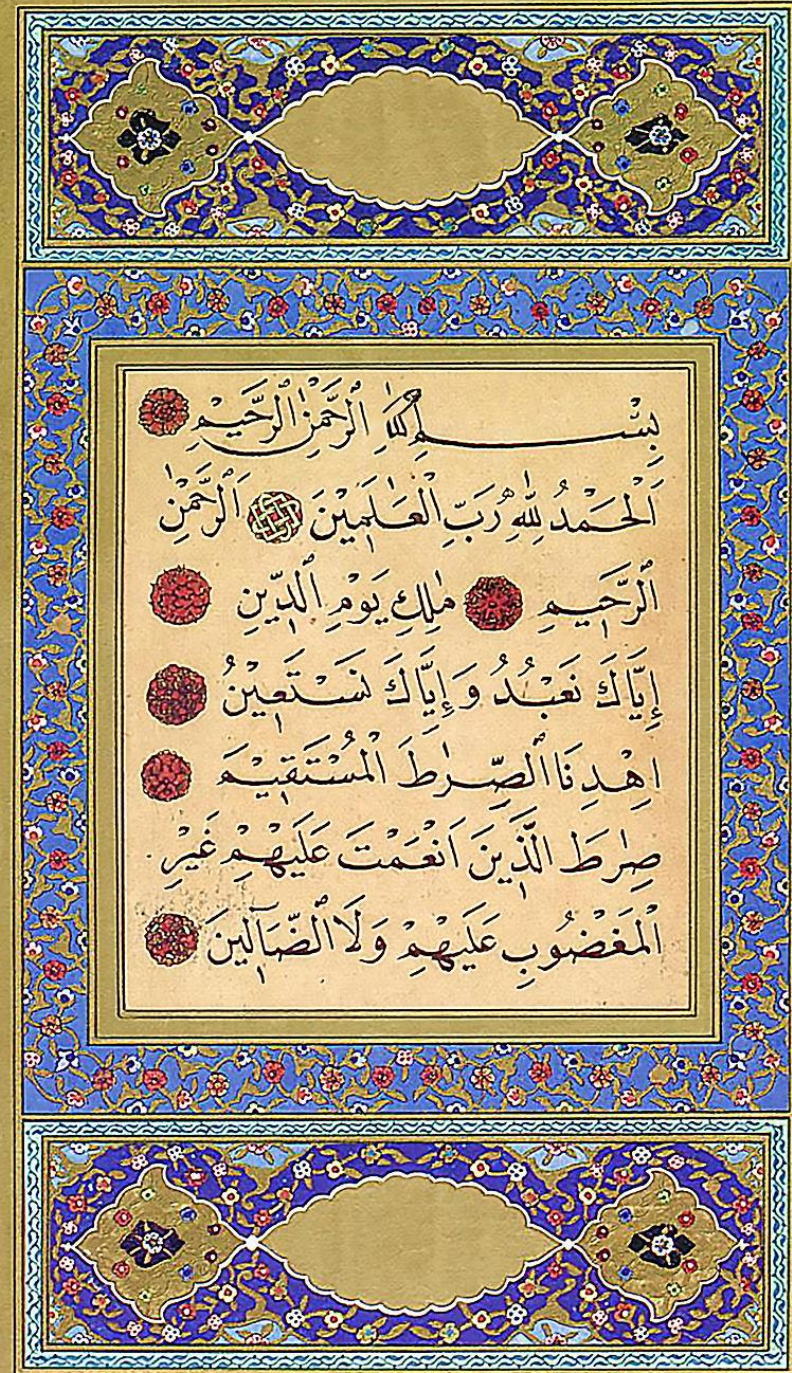 بِسْمِ اللّٰهِ الرَّحْمٰنِ الرَّحٖيمِ
اَلْحَمْدُ لِلّٰهِ رَبِّ الْعَالَمٖينَ اَلرَّحْمٰنِ
الرَّحٖيمِ مٰلِكِ يَوْمِ الدّٖينِ
إِيَّاكَ نَعْبُدُ وَإِيَّاكَ نَسْتَعٖينُ
اِهْدِنَا الصِّرٰطَ الْمُسْتَقٖيمَ
صِرٰطَ الَّذٖينَ اَنْعَمْتَ عَلَيْهِمْ غَيْرِ
الْمَغْضُوبِ عَلَيْهِمْ وَلَا الضَّٓالّٖينَ